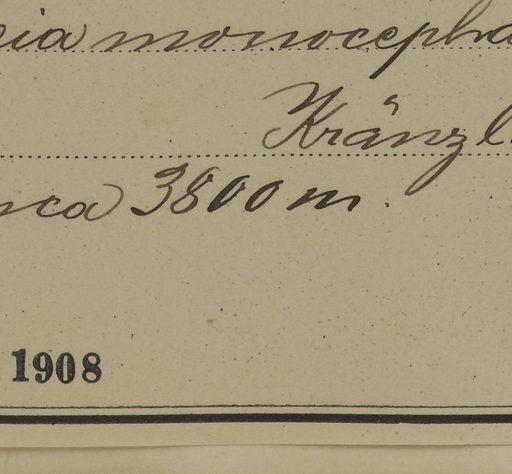 cia monocepha
Kränzl.
nca 3800 m.
1908